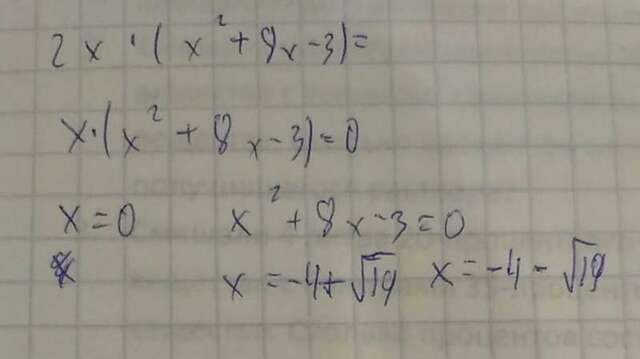 2x·(x²+8x-3)=
x·(x²+8x-3)=0
x=0 x²+8x-3=0
x=-4+√19 x=-4-√19